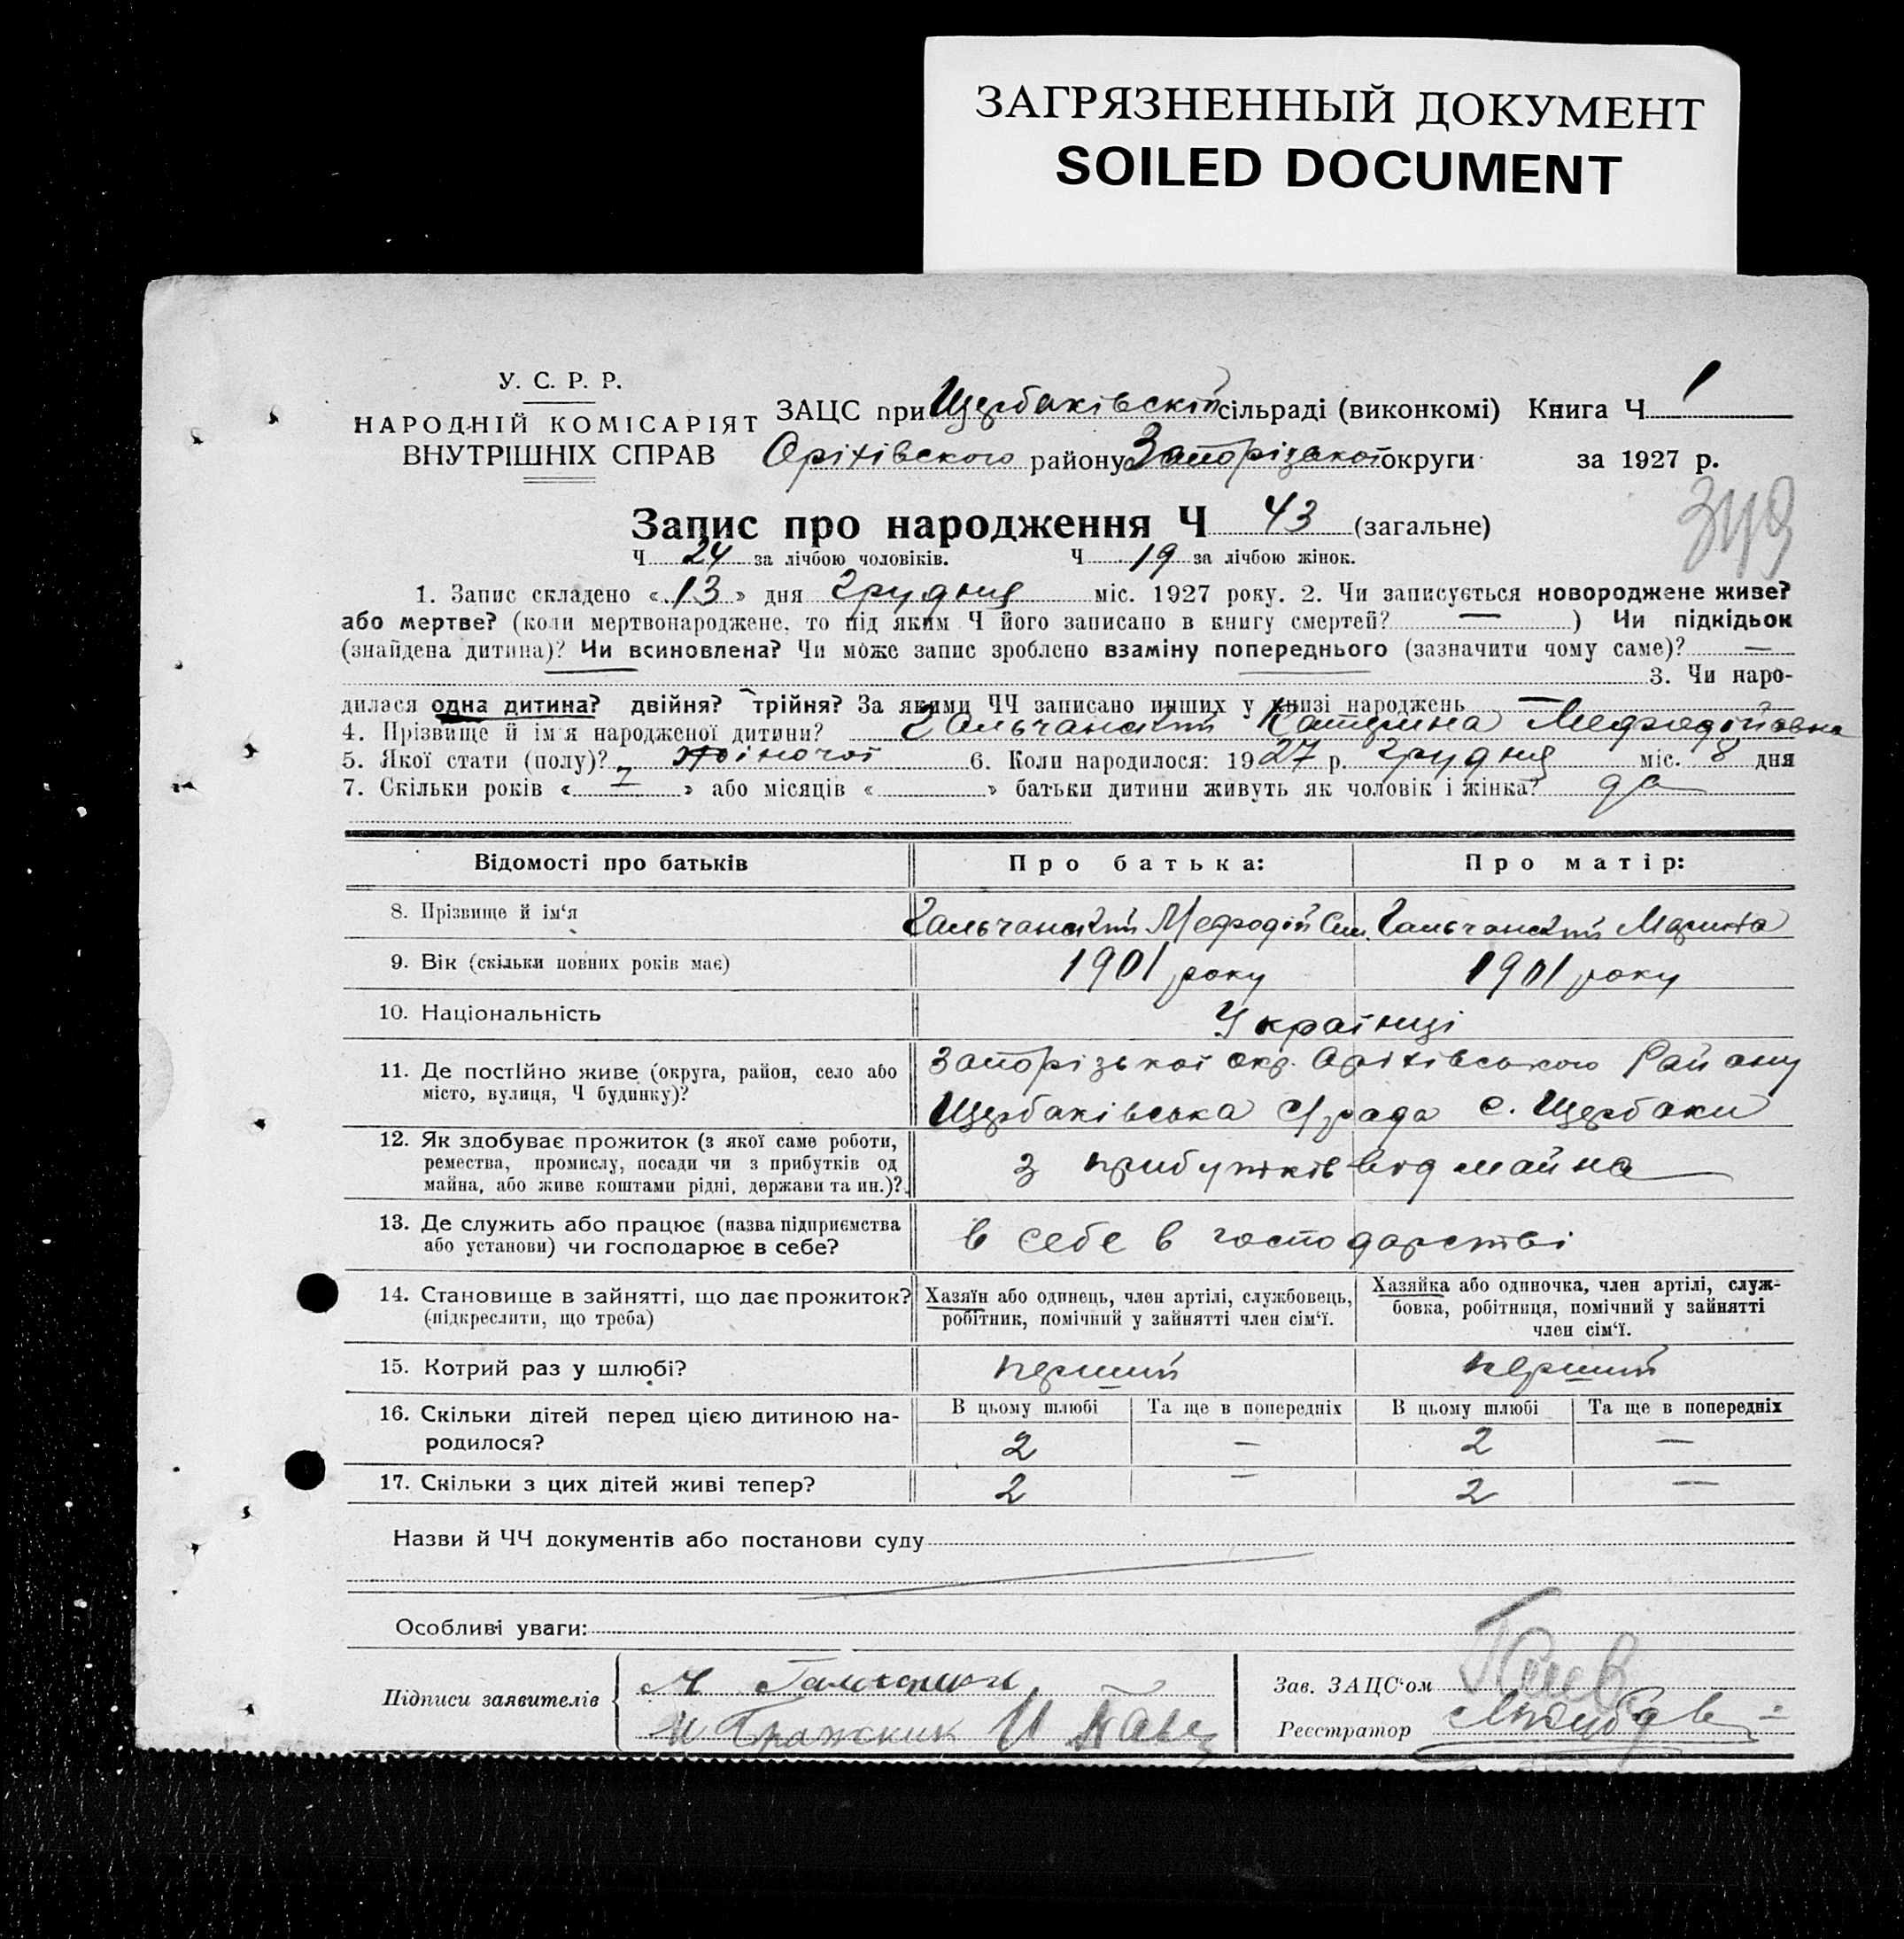 ЗАГРЯЗНЕННЫЙ ДОКУМЕНТ
SOILED DOCUMENT
У. С. Р. Р.
НАРОДНІЙ КОМІСАРІЯТ
ВНУТРІШНІХ СПРАВ
ЗАЦС при Щербаківскій сільраді (виконкомі) Книга Ч 1
Оріхівского району Запорізакої округи за 1927 р.
Запис про народження Ч 43 (загальне)
349
Ч 24 за лічбою чоловіків. Ч 19 за лічбою жінок.
1. Запис складено «13» дня грудня міс. 1927 року. 2. Чи записується новороджене живе?
або мертве? (коли мертвонароджене, то під яким Ч його записано в книгу смертей? — ) Чи підкідьок
(знайдена дитина)? Чи всиновлена? Чи може запис зроблено взаміну попереднього (зазначити чому саме)? —
3. Чи наро-
дилася одна дитина? двійня? трійня? За якими ЧЧ записано инших у книзі народжень —
4. Прізвище й ім'я народженої дитини? Гальчанский Катерина Мефодійовна
5. Якої стати (полу)? жіночої 6. Коли народилося: 1927 р. грудня міс. 8 дня
7. Скільки років « » або місяців « » батьки дитини живуть як чоловік і жінка? да
Відомості про батьків Про батька: Про матір:
8. Прізвище й ім'я Гальчанский Мефодій Сем. Гальчанский Марина
9. Вік (скільки повних років має) 1901 року 1901 року
10. Національність Українці
11. Де постійно живе (округа, район, село або
місто, вулиця, Ч будинку)?
Запорізької окр. Оріхівського Району
Щербаківська с/рада с. Щербаки
12. Як здобуває прожиток (з якої саме роботи,
ремества, промислу, посади чи з прибутків од
майна, або живе коштами рідні, держави та ин.)?
з прибутків від майна
13. Де служить або працює (назва підприємства
або установи) чи господарює в себе?
в себе в господарстві
14. Становище в зайнятті, що дає прожиток?
(підкреслити, що треба)
Хазяїн або одинець, член артілі, службовець,
робітник, помічний у зайнятті член сім'ї.
Хазяйка або одиночка, член артілі, служ-
бовка, робітниця, помічний у зайнятті
член сім'ї.
15. Котрий раз у шлюбі? перший перший
16. Скільки дітей перед цією дитиною на-
родилося?
В цьому шлюбі Та ще в попередніх В цьому шлюбі Та ще в попередніх
2 — 2 —
17. Скільки з цих дітей живі тепер? 2 — 2 —
Назви й ЧЧ документів або постанови суду
Особливі уваги:
Підписи заявителів
Зав. ЗАЦС'ом
Реєстратор